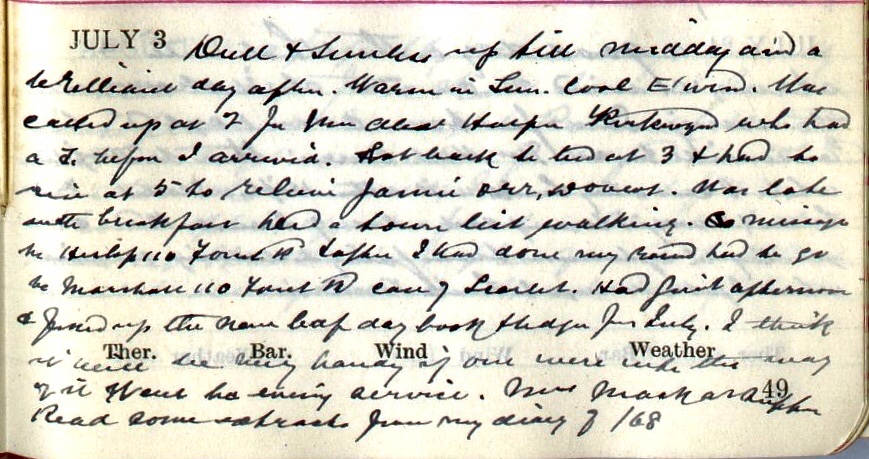 JULY 3
Dull & Sunless up till midday and a
brilliant day after. Warm in Sun. Cool E wind. Was
called up at 2 for Mrs Harper who had
a F. before I arrived. Got back to bed at 3 & had to
rise at 5 to relieve Jamie Orr, . Was late
with breakfast had a hours list walking. message
to 110 Forest Rd & after I had done my round had to go
to Marshall 110 Forest Rd case of Scarlet. Had quiet afternoon
& fixed up the new leaf day book & ledger for July. I think
Ther. Bar. Wind Weather
it will be very handy if one were into the way
of it Went to evening service. Mrs
49
Read some extracts from my diary of '68